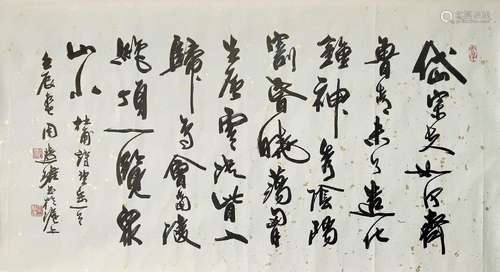 岱宗夫如何齊
魯青未了造化
鍾神秀陰陽
割昏曉蕩胸
生層雲決眥入
歸鳥會當凌
絕頂一覽眾
山小
杜甫詩望岳一首
壬辰